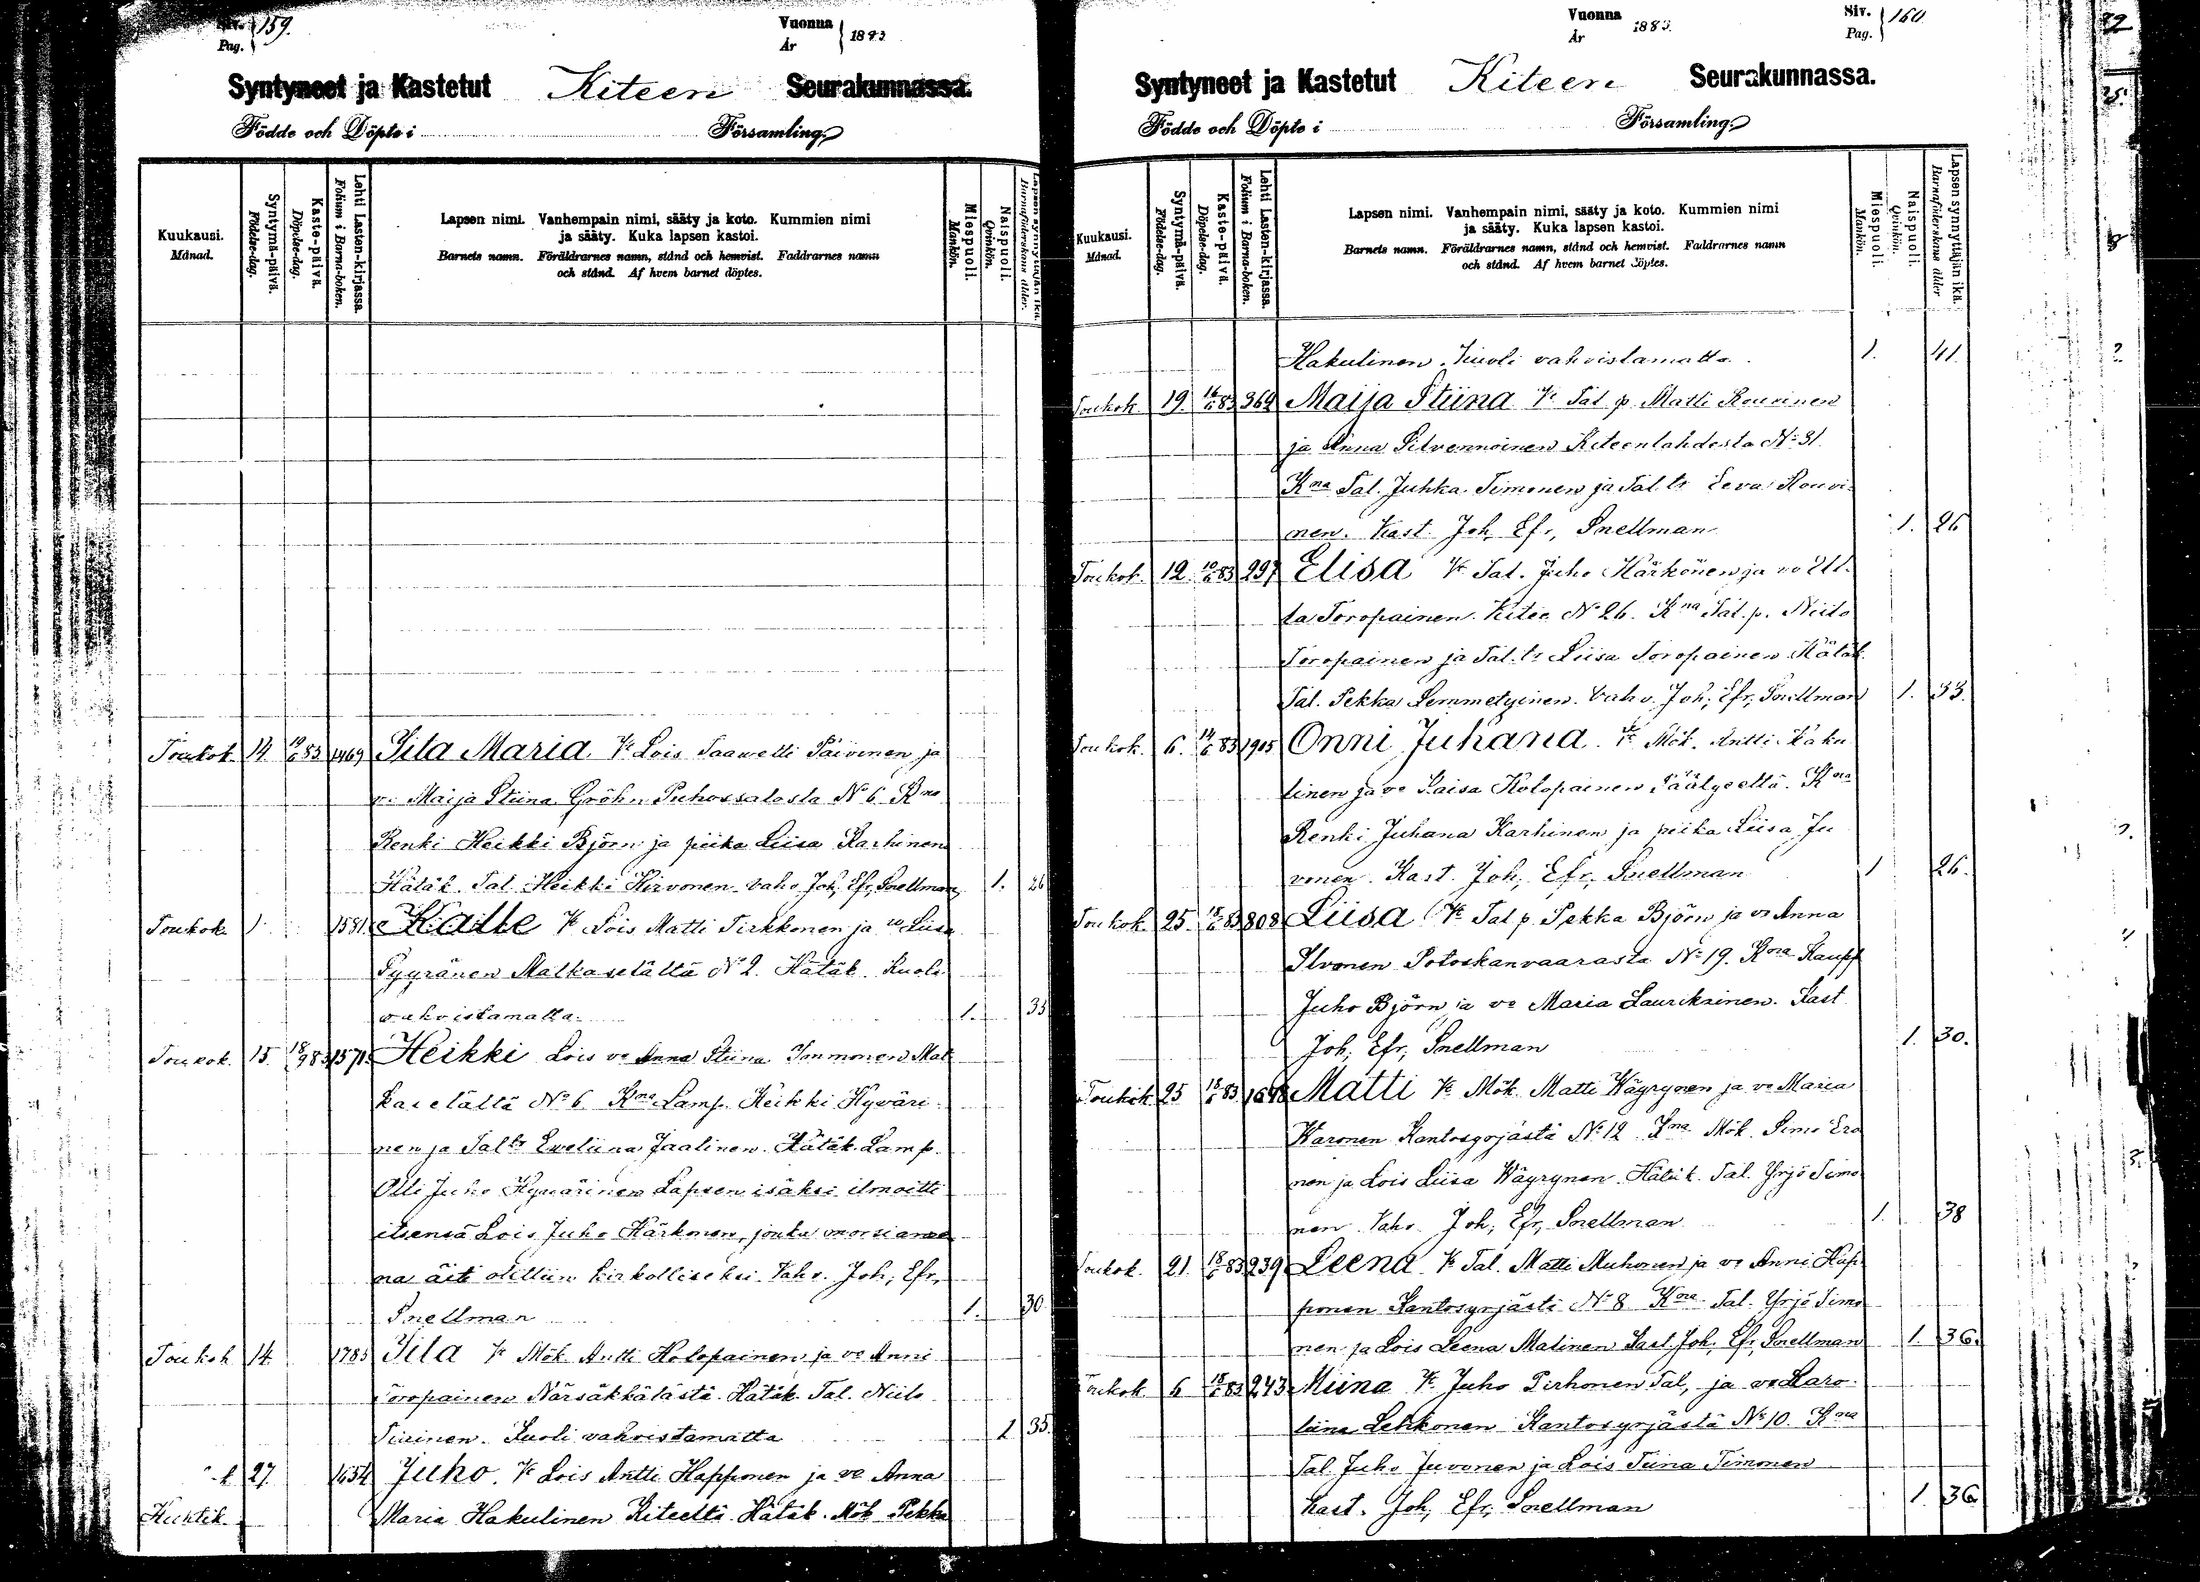 Pag. 159.
Vuonna År 1883
Syntyneet ja Kastetut Kiteen Seurakunnassa.
Födde och Döpte i Församling.
Kuukausi. Månad.
Syntymä-päivä. Födelse-dag.
Kaste-päivä. Döpelse-dag.
Lehti Lasten-kirjassa. Folium i Barna-boken.
Lapsen nimi. Vanhempain nimi, sääty ja koto. Kummien nimi
ja sääty. Kuka lapsen kastoi.
Barnets namn. Föräldrarnes namn, stånd och hemvist. Faddrarnes namn
och stånd. Af hvem barnet döptes.
Miespuoli. Mankön.
Naispuoli. Qvinkön.
Lapsen synnyttäjän ikä. Barnaföderskans ålder.
Toukok. 14. 10/6 83 1469 Iita Maria. Vr Lois Taavetti Päivinen ja
vo Maija Stiina Gröhn Puhossalosta No 6 Kna
Renki Heikki Björn ja piika Liisa Karhinen
Hätäk. Tal. Heikki Hirvonen vahv. Joh, Efr, Snellman 1. 26
Toukok. 1 1581 Kalle Vr Lois Matti Tirkkonen ja vo Liisa
Pyyränen Matkaselältä No 2. Hätäk. Kuoli
vahvistamatta. 1. 35
Toukok. 15. 1571 Heikki Lois vo Anna Stiina Immonen Mat
kaselältä No 6 Kna Lamp. Heikki Hyväri
nen ja Taltr Eveliina Jaalinen. Hätäk. Lamp.
Olli Juho Hyvärinen Lapsen isäksi ilmoitti
itsensä Lois Juho Härkönen, jonka morsiamena
na äiti otettiin kirkolliseksi. Vahv. Joh, Efr,
Snellman 1. 30
Toukok 14. 1785 Iita Vr Mök Antti Holopainen ja vo Anni
Toropainen Närsäkkälästä. Hätäk. Tal. Niilo
Tiirinen. Kuoli vahvistamatta 1 35.
27. 1654 Juho. Vr Lois Antti Happonen ja vo Anna
Huhtik. Maria Hakulinen Kiteeltä. Hätäk. Mök Pekka
Siv. Pag. 160
Vuonna År 1883.
Syntyneet ja Kastetut Kiteen Seurakunnassa.
Födde och Döpte i Församling.
Kuukausi. Månad.
Syntymä-päivä. Födelse-dag.
Kaste-päivä. Döpelse-dag.
Lehti Lasten-kirjassa. Folium i Barna-boken.
Lapsen nimi. Vanhempain nimi, sääty ja koto. Kummien nimi
ja sääty. Kuka lapsen kastoi.
Barnets namn. Föräldrarnes namn, stånd och hemvist. Faddrarnes namn
och stånd. Af hvem barnet döptes.
Miespuoli. Mankön.
Naispuoli. Qvinkön.
Lapsen synnyttäjän ikä. Barnaföderskans ålder
Hakulinen. Kuoli vahvistamatta. 1. 41.
Toukok 19. 14/6 83 362 Maija Stiina Vr Tal p. Matti Rouvinen
ja Anna Silvennoinen Kiteenlahdesta No 31.
Kna Tal. Juhka Timonen ja Tal.tr Eeva Rouvi-
nen. Kast. Joh, Efr, Snellman 1. 26
Toukok. 12. 10/6 83 297 Elisa Vr Tal. Juho Härkönen ja vo Ul
la Toropainen. Kitee No 26. Kna Tal.p. Niilo
Toropainen ja Tal.tr Liisa Toropainen. Hätäk.
Tal. Pekka Lemmetyinen. Vahv. Joh, Efr, Snellman 1. 33.
Toukok. 6. 14/6 83 1905 Onni Juhana. Vr Mök. Antti Haku
linen ja vo Kaisa Holopainen Päätyeeltä. Kna
Renki Juhana Karhinen ja piika Liisa Ju
vonen. Kast. Joh, Efr, Snellman 1 26.
Toukok. 25. 18/6 83 808 Liisa Vr Tal p. Pekka Björn ja vo Anna
Ilvonen Potoskanvaarasta No 19. Kna Kaupp
Juho Björn ja vo Maria Laurikainen. Kast
Joh, Efr, Snellman 1. 30.
Toukok 25 18/6 83 1648 Matti Vr Mök. Matti Wäyrynen ja vo Maria
Karonen Kantosyrjästä No 12 Kna Mök. Simo Ero
nen ja Lois Liisa Wäyrynen. Hätäk. Tal. Yrjö Simo
nen. Vahv. Joh, Efr, Snellman 1. 38
Toukok. 21. 18/6 83 239 Leena Vr Tal. Matti Muhonen ja vo Anni Hap
ponen Kantosyrjästä No 8 Kna Tal. Yrjö Simo
nen ja Lois Leena Matinen Kast. Joh, Efr, Snellman 1. 36.
Toukok. 6 18/6 83 243 Miina Vr Juho Pirhonen Tal, ja vo Karo-
liina Lehkonen Kantosyrjästä No 10. Kna
Tal. Juho Juvonen ja Lois Tiina Timonen
Kast. Joh, Efr, Snellman 1. 36